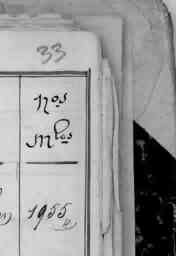 33
Nos
Mlos
1955